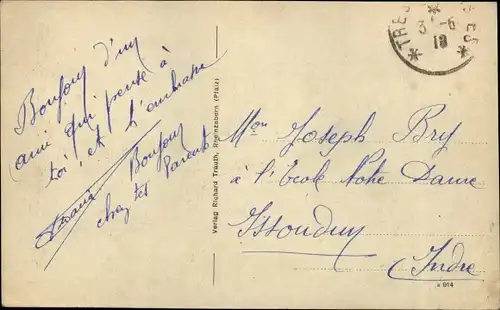 Bonjour d'un
ami qui pense à
toi, et t'embrasse
Bonjour
chez tes Parents
Verlag Richard Trauth, Rheinzabern (Pfalz)
TRÉS
3 -6
19
Mon Joseph Bry
à l'École Notre Dame
Issoudun
Indre
914